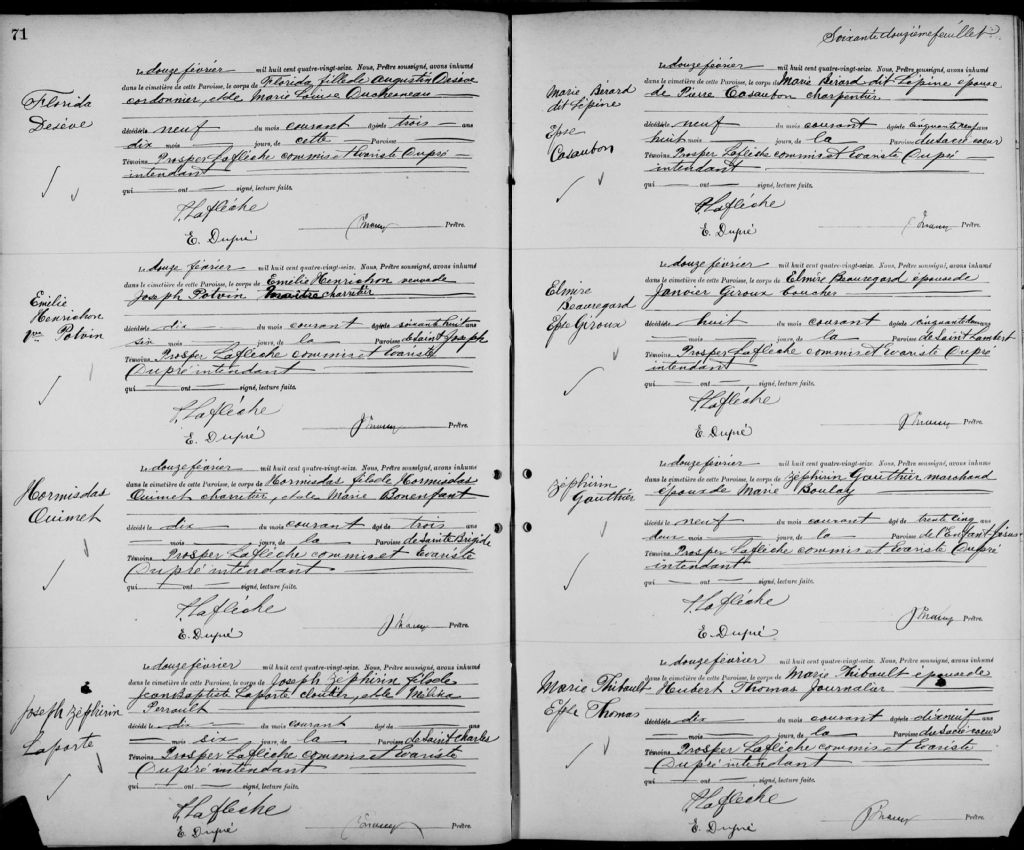 71
Florida
Desève
Le douze février mil huit cent quatre-vingt-seize. Nous, Prêtre soussigné, avons inhumé
dans le cimetière de cette Paroisse, le corps de Florida fille de Augustin Desève
cordonnier, et de Marie Louise Duchesneau
décédée le neuf du mois courant âgée de trois ans
dix mois jours, de cette Paroisse
Témoins Prosper Laflèche commis et Evariste Dupré
intendant
qui ont signé, lecture faite.
P. Laflèche
E. Dupré
Prêtre.
Emélie
Henrichon
Potvin
Le douze février mil huit cent quatre-vingt-seize. Nous, Prêtre soussigné, avons inhumé
dans le cimetière de cette Paroisse, le corps de Emélie Henrichon veuve de
Joseph Potvin charretier
décédée le dix du mois courant âgée de soixante huit ans
six mois jours, de la Paroisse de Saint Joseph
Témoins Prosper Laflèche commis et Evariste
Dupré intendant
qui ont signé, lecture faite.
P. Laflèche
E. Dupré
Prêtre.
Hormisdas
Ouimet
Le douze février mil huit cent quatre-vingt-seize. Nous, Prêtre soussigné, avons inhumé
dans le cimetière de cette Paroisse, le corps de Hormisdas fils de Hormisdas
Ouimet charretier, et de Marie Bonenfant
décédé le dix du mois courant âgé de trois ans
mois jours, de la Paroisse de Sainte Brigide
Témoins Prosper Laflèche commis et Evariste
Dupré intendant
qui ont signé, lecture faite.
P. Laflèche
E. Dupré
Prêtre.
Joseph Zéphirin
Laporte
Le douze février mil huit cent quatre-vingt-seize. Nous, Prêtre soussigné, avons inhumé
dans le cimetière de cette Paroisse, le corps de Joseph Zéphirin fils de
Jean Baptiste Laporte cloutier, et de Mélina
Perrault
décédé le dix du mois courant âgé de
six mois jours, de la Paroisse de Saint Charles
Témoins Prosper Laflèche commis et Evariste
Dupré intendant
qui ont signé, lecture faite.
P. Laflèche
E. Dupré
Prêtre.
Soixante douzième feuillet.
Marie Birard
dit Lépine
Epse
Casaubon
Le douze février mil huit cent quatre-vingt-seize. Nous, Prêtre soussigné, avons inhumé
dans le cimetière de cette Paroisse, le corps de Marie Birard dit Lépine épouse
de Pierre Casaubon charpentier
décédée le neuf du mois courant âgée de cinquante neuf ans
huit mois jours, de la Paroisse du Sacré coeur
Témoins Prosper Laflèche commis et Evariste Dupré
intendant
qui ont signé, lecture faite.
P. Laflèche
E. Dupré
Prêtre.
Elmire
Beauregard
Epse Giroux
Le douze février mil huit cent quatre-vingt-seize. Nous, Prêtre soussigné, avons inhumé
dans le cimetière de cette Paroisse, le corps de Elmire Beauregard épouse de
Janvier Giroux boucher
décédée le huit du mois courant âgée de ans
mois jours, de la Paroisse de Saint Lambert
Témoins Prosper Laflèche commis et Evariste Dupré
intendant
qui ont signé, lecture faite.
P. Laflèche
E. Dupré
Prêtre.
Zéphirin
Gauthier
Le douze février mil huit cent quatre-vingt-seize. Nous, Prêtre soussigné, avons inhumé
dans le cimetière de cette Paroisse, le corps de Zéphirin Gauthier marchand
époux de Marie Boulay
décédé le neuf du mois courant âgé de trente cinq ans
deux mois jours, de la Paroisse de l'Enfant Jésus
Témoins Prosper Laflèche commis et Evariste Dupré
intendant
qui ont signé, lecture faite.
P. Laflèche
E. Dupré
Prêtre.
Marie Thibault
Epse Thomas
Le douze février mil huit cent quatre-vingt-seize. Nous, Prêtre soussigné, avons inhumé
dans le cimetière de cette Paroisse, le corps de Marie Thibault épouse de
Hubert Thomas journalier
décédée le dix du mois courant âgée de dix neuf ans
mois jours, de la Paroisse du Sacré coeur
Témoins Prosper Laflèche commis et Evariste
Dupré intendant
qui ont signé, lecture faite.
P. Laflèche
E. Dupré
Prêtre.